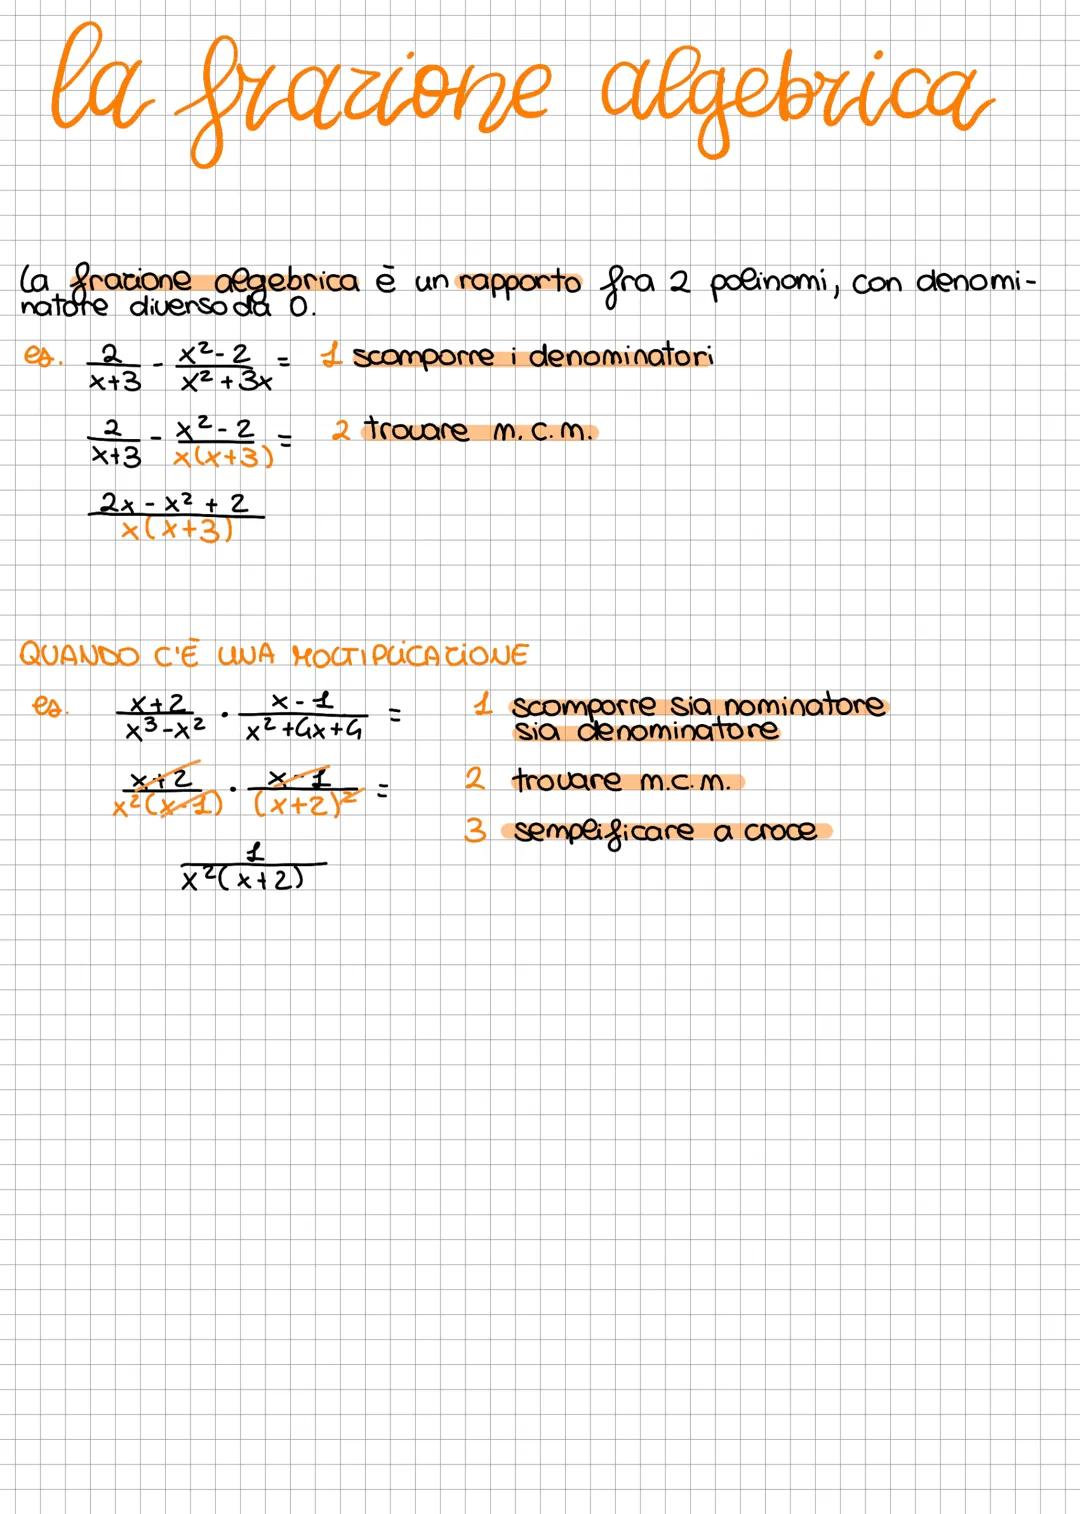 la frazione algebrica
La frazione algebrica è un rapporto fra 2 polinomi, con denomi-
natore diverso da 0.
es. 2/(x+3) - (x²-2)/(x²+3x) = 1 scomporre i denominatori
2/(x+3) - (x²-2)/(x(x+3)) = 2 trovare m.c.m.
(2x - x² + 2)/(x(x+3))
QUANDO C'È UNA MOLTIPLICAZIONE
es. (x+2)/(x³-x²) · (x-1)/(x²+4x+4) = 1 scomporre sia nominatore
sia denominatore
(x+2)/(x²(x-1)) · (x-1)/((x+2)²) = 2 trovare m.c.m.
3 semplificare a croce
1/(x²(x+2))